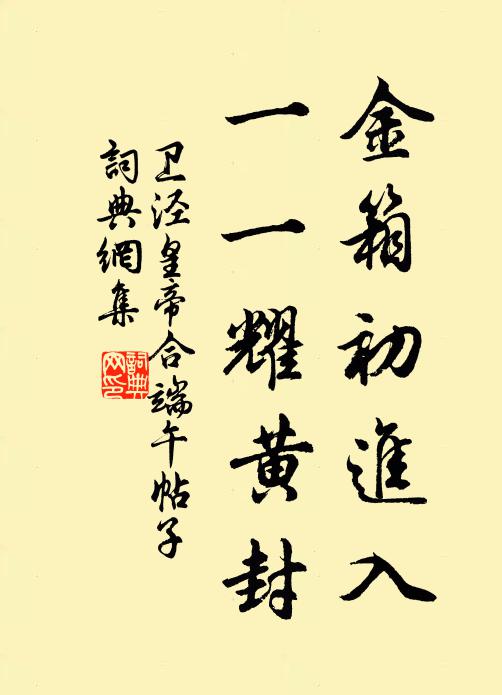 金箱初進入
一一耀黃封
卫泾皇帝合端午帖子
詞典網集
詞典网印